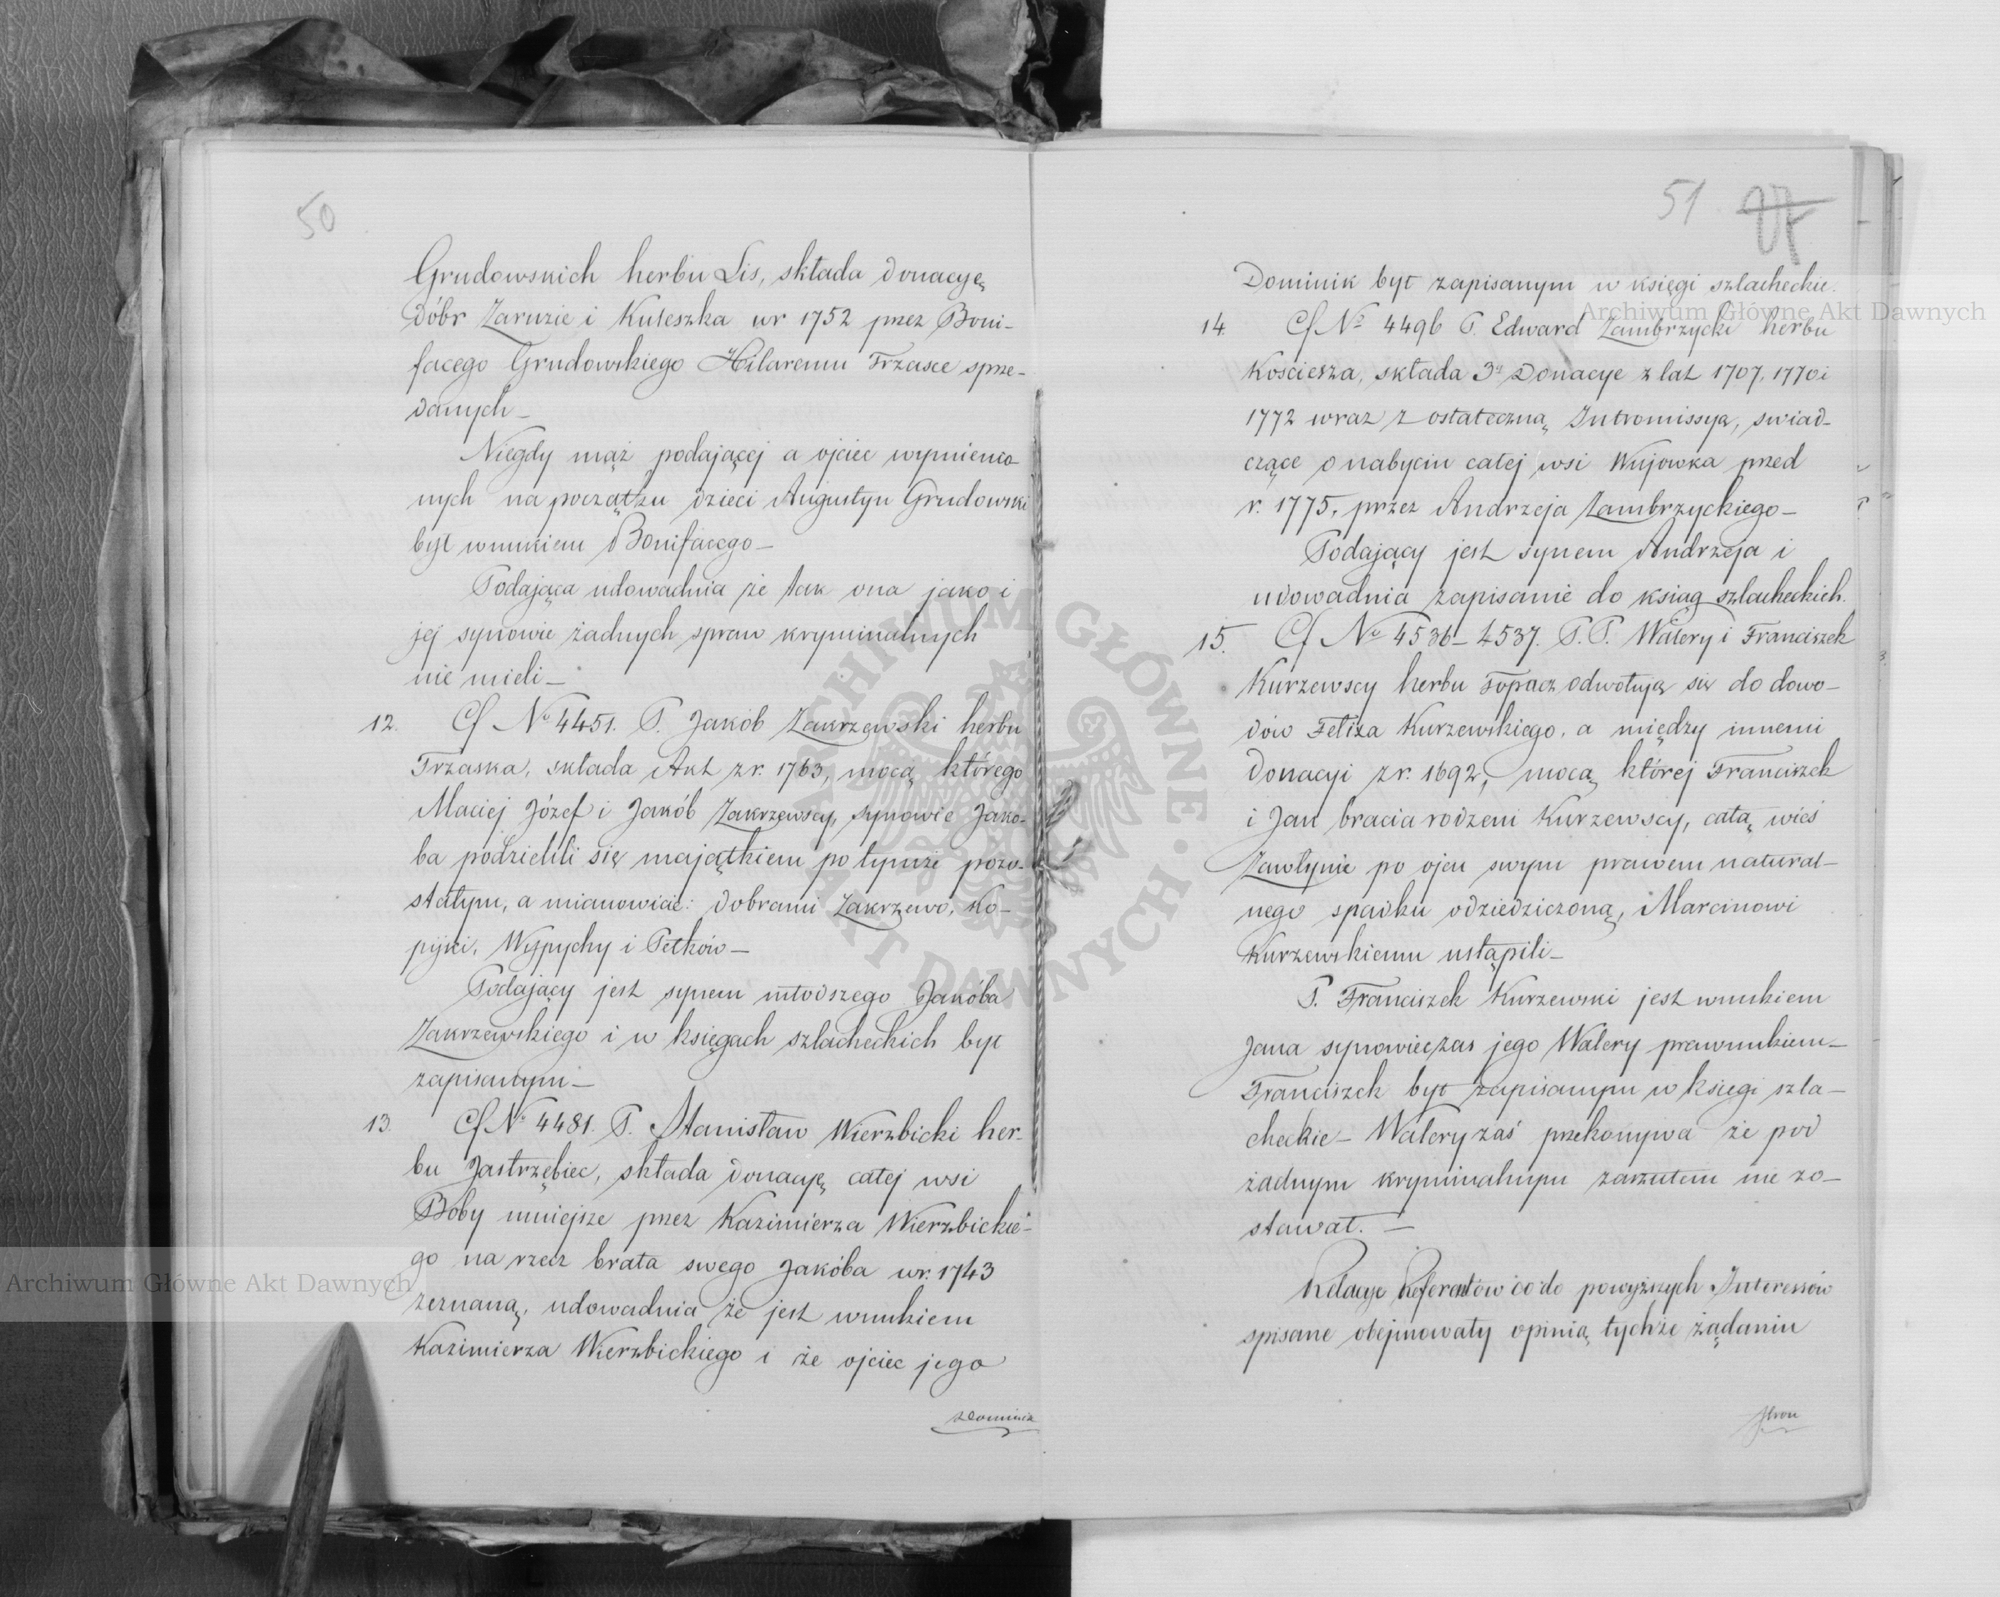 50
Grudowskich herbu Lis, składa donacyę
dóbr Zaruzie i Kuleszka w r 1752 przez Boni-
facego Grudowskiego Hilaremu Trzasce sprze-
danych_
Niegdy mąż podającej a ojciec wymienio-
nych na początku dzieci Augustyn Grudowski
był wnukiem Bonifacego_
Podająca udowadnia że tak ona jako i
jej synowie żadnych spraw kryminalnych
nie mieli_
12. Cf No 4451. P. Jakób Zakrzewski herbu
Trzaska, składa Akt z r. 1763, mocą którego
Maciej Józef i Jakób Zakrzewscy, synowie Jakó-
ba podzielili się majątkiem po tymże pozo-
stałym, a mianowicie: dobrami Zakrzewo, Ko-
pijki, Wypychy i Petków_
Podający jest synem młodszego Jakóba
Zakrzewskiego i w księgach szlacheckich był
zapisanym_
13. Cf No 4481. P. Stanisław Wierzbicki her-
bu Jastrzębiec, składa donacyę całej wsi
Boby mniejsze przez Kazimierza Wierzbickie-
go na rzecz brata swego Jakóba w r. 1743
zeznaną, udowadnia że jest wnukiem
Kazimierza Wierzbickiego i że ojciec jego
Dominik
51
Dominik był zapisanym w księgi szlacheckie.
14 Cf No 4496 P. Edward Zambrzycki herbu
Kościesza, składa 3y Donacye z lat 1707, 1770 i
1772 wraz z ostateczną Intromissyą, świad-
czące o nabyciu całej wsi Wujowka przed
r. 1775, przez Andrzeja Zambrzyckiego_
Podający jest synem Andrzeja i
udowadnia zapisanie do ksiąg szlacheckich.
15. Cf No 4536_4537. P. P. Walery i Franciszek
Kurzewscy herbu Topacz odwołują się do dowo-
dów Felixa Kurzewskiego, a między innemi
Donacyi z r. 1692, mocą której Franciszek
i Jan bracia rodzeni Kurzewscy, całą wieś
Zawłynie po ojcu swym prawem natural-
nego spadku odziedziczoną, Marcinowi
Kurzewskiemu ustąpili_
P. Franciszek Kurzewski jest wnukiem
Jana synowiec zas jego Walery prawnukiem_
Franciszek był zapisanym w księgi szla-
checkie_ Walery zaś przekonywa że pod
żadnym kryminalnym zarzutem nie zo-
stawał._
Relacye Referentów co do powyższych Interessów
spisane obejmowały opinią tychże żądaniu
Archiwum Główne Akt Dawnych
Archiwum Główne Akt Dawnych
ARCHIWUM GŁÓWNE AKT DAWNYCH